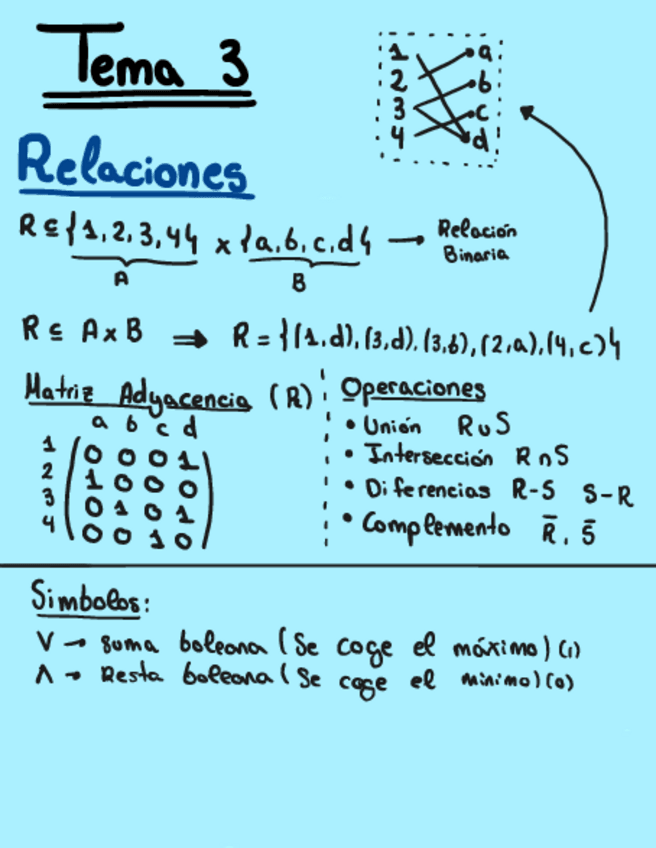 Tema 3
1 a
2 b
3 c
4 d
Relaciones
R ⊆ {1, 2, 3, 4} x {a, b, c, d} → Relación Binaria
A B
R ⊆ A x B ⇒ R = {(1,d), (3,d), (3,b), (2,a), (4,c)}
Matriz Adyacencia (R)
a b c d
1 0 0 0 1
2 1 0 0 0
3 0 1 0 1
4 0 0 1 0
Operaciones
• Unión R∪S
• Intersección R∩S
• Diferencias R-S S-R
• Complemento R̄, S̄
Simbolos:
V → suma boleana (Se coge el máximo) (1)
Λ → Resta boleana (Se coge el minimo) (0)